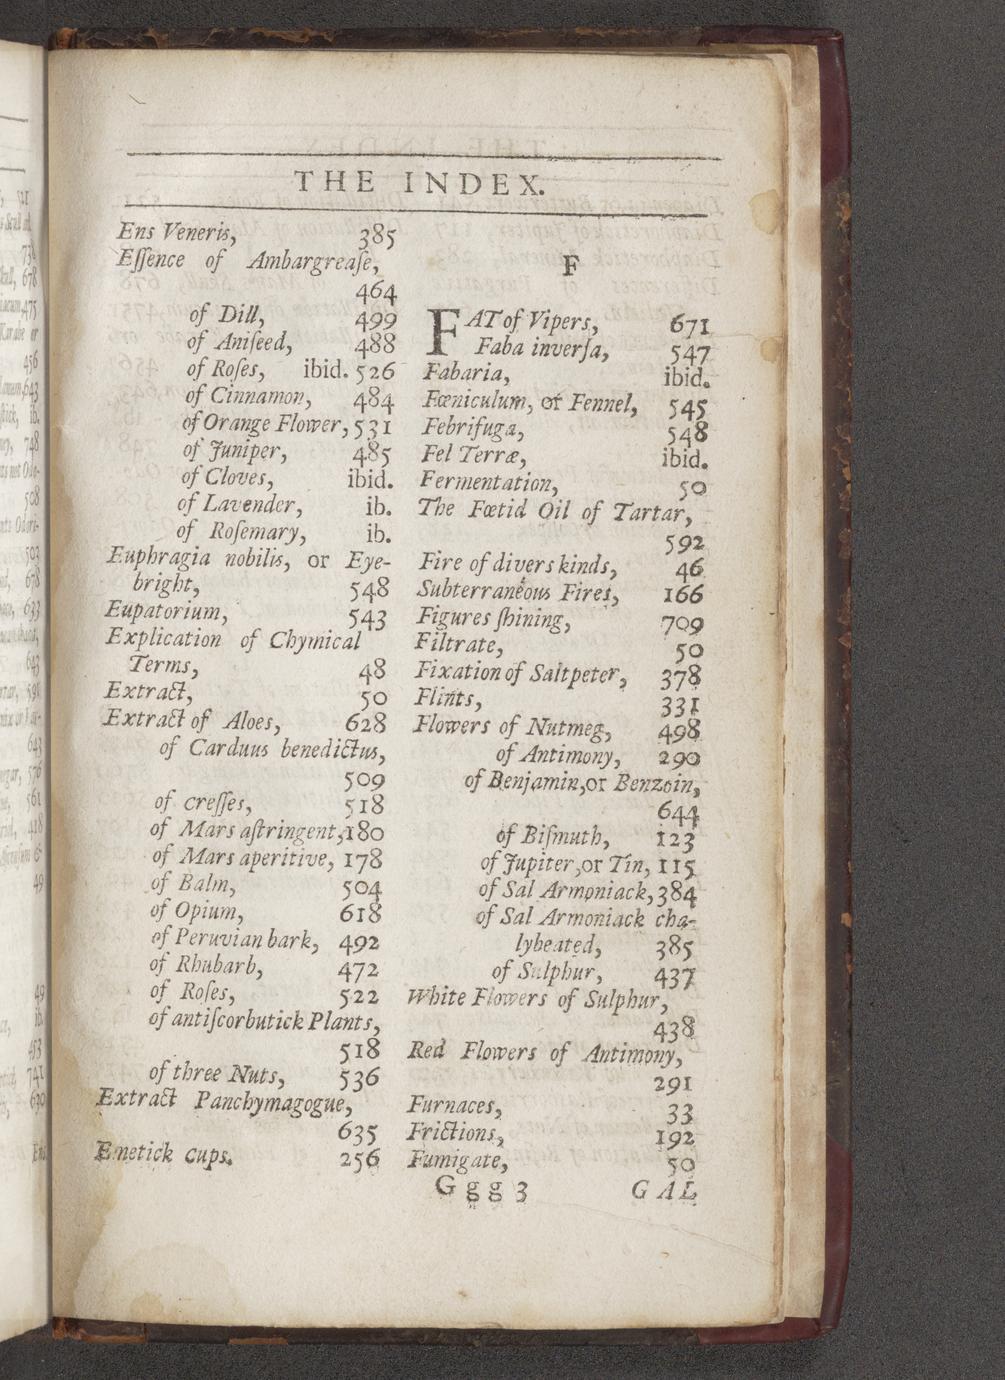 THE INDEX.
Ens Veneris, 385
Eſſence of Ambargreaſe,
464
of Dill, 499
of Aniſeed, 488
of Roſes, ibid. 526
of Cinnamon, 484
of Orange Flower, 531
of Juniper, 485
of Cloves, ibid.
of Lavender, ib.
of Roſemary, ib.
Euphragia nobilis, or Eye-
bright, 548
Eupatorium, 543
Explication of Chymical
Terms, 48
Extract, 50
Extract of Aloes, 628
of Carduus benedictus,
509
of creſſes, 518
of Mars aſtringent, 180
of Mars aperitive, 178
of Balm, 504
of Opium, 618
of Peruvian bark, 492
of Rhubarb, 472
of Roſes, 522
of antiſcorbutick Plants,
518
of three Nuts, 536
Extract Panchymagogue,
635
Emetick cups. 256
F
FAT of Vipers, 671
Faba inverſa, 547
Fabaria, ibid.
Fœniculum, or Fennel, 545
Febrifuga, 548
Fel Terræ, ibid.
Fermentation, 50
The Fœtid Oil of Tartar,
592
Fire of divers kinds, 46
Subterraneous Fires, 166
Figures ſhining, 709
Filtrate, 50
Fixation of Saltpeter, 378
Flints, 331
Flowers of Nutmeg, 498
of Antimony, 290
of Benjamin, or Benzoin,
644
of Biſmuth, 123
of Jupiter, or Tin, 115
of Sal Armoniack, 384
of Sal Armoniack cha-
lybeated, 385
of Sulphur, 437
White Flowers of Sulphur,
438
Red Flowers of Antimony,
291
Furnaces, 33
Frictions, 192
Fumigate, 50
Ggg 3 GAL